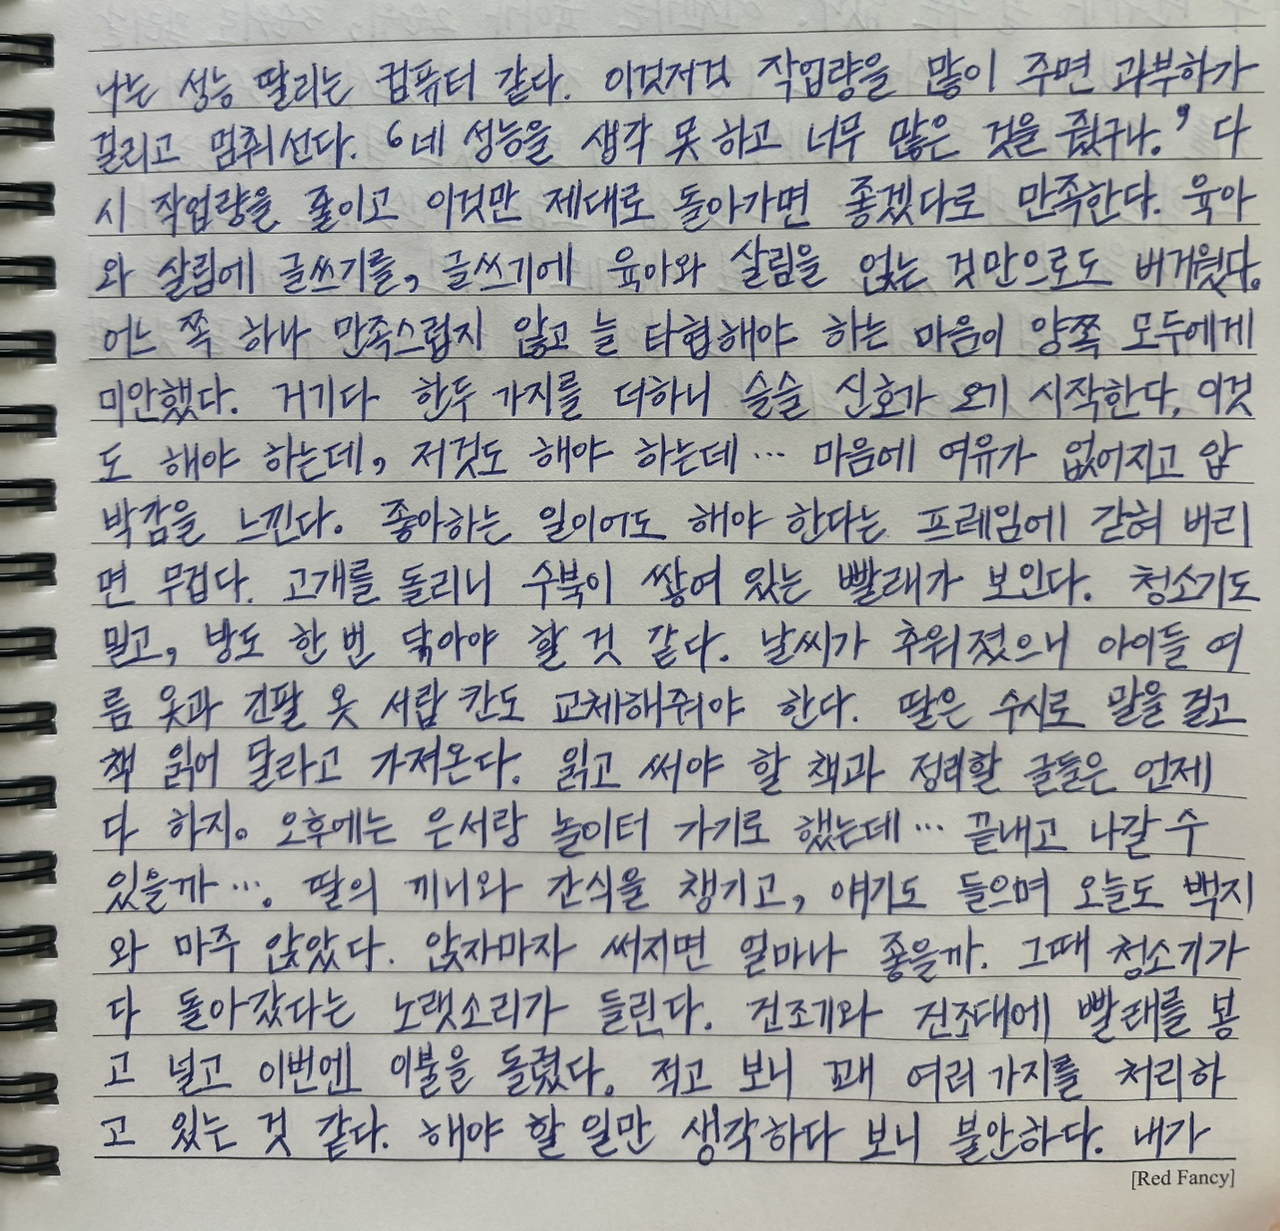 나는 성능 딸리는 컴퓨터 같다. 이것저것 작업량을 많이 주면 과부하가
걸리고 멈춰선다. ‘네 성능을 생각 못 하고 너무 많은 것을 줬구나.’ 다
시 작업량을 줄이고 이것만 제대로 돌아가면 좋겠다로 만족한다. 육아
와 살림에 글쓰기를, 글쓰기에 육아와 살림을 얹는 것만으로도 버거웠다.
어느 쪽 하나 만족스럽지 않고 늘 타협해야 하는 마음이 양쪽 모두에게
미안했다. 거기다 한두 가지를 더하니 슬슬 신호가 오기 시작한다. 이것
도 해야 하는데, 저것도 해야 하는데… 마음에 여유가 없어지고 압
박감을 느낀다. 좋아하는 일이어도 해야 한다는 프레임에 갇혀 버리
면 무겁다. 고개를 돌리니 수북이 쌓여 있는 빨래가 보인다. 청소기도
밀고, 방도 한 번 닦아야 할 것 같다. 날씨가 추워졌으니 아이들 여
름 옷과 긴팔 옷 서랍 칸도 교체해줘야 한다. 딸은 수시로 말을 걸고
책 읽어 달라고 가져온다. 읽고 써야 할 책과 정리할 글들은 언제
다 하지. 오후에는 은서랑 놀이터 가기로 했는데… 끝내고 나갈 수
있을까…. 딸의 끼니와 간식을 챙기고, 얘기도 들으며 오늘도 백지
와 마주 앉았다. 앉자마자 써지면 얼마나 좋을까. 그때 청소기가
다 돌아갔다는 노랫소리가 들린다. 건조기와 건조대에 빨래를 넣
고 널고 이번엔 이불을 돌렸다. 적고 보니 꽤 여러 가지를 처리하
고 있는 것 같다. 해야 할 일만 생각하다 보니 불안하다. 내가
[Red Fancy]